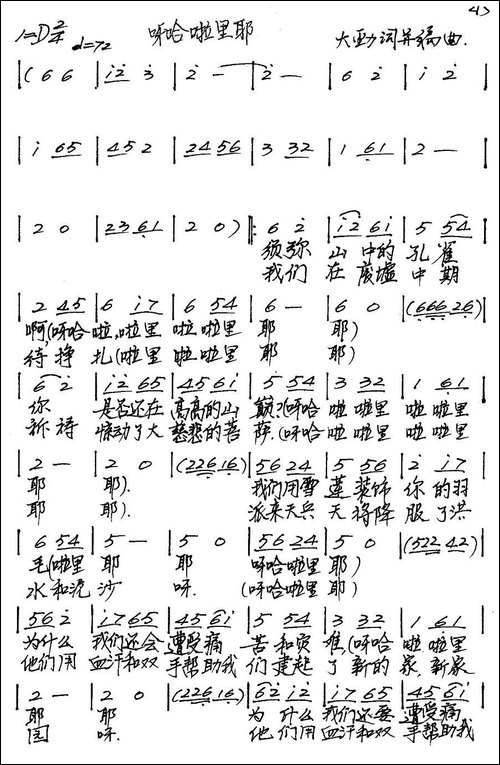 43
1=D 2/4 ♩=72 呀哈啦里耶 大勐词并编曲.
|(6 6 |i2 3 |2 — |2 — |6 2 |i 2 |
|i 65 |45 2 |24 56 |3 32 |1 61 |2 — |
|2 0 |23 61 |2 0) ‖: 6 2 |i2 6i |5 54 |
须弥 山 中的 孔雀
我们 在 废墟 中 期
|2 45 |6 i7 |6 54 |6 — |6 0 |(666 26)|
啊(呀哈 啦,啦里 啦 啦里 耶 耶)
待 挣 扎(啦里 啦 啦里 耶 耶)
|6 2 |i2 65 |45 6i |5 54 |3 32 |1 61 |
你 是否还在 高高的山 巅?(呀哈 啦 啦里 啦 啦里
祈祷 惊动了大 慈悲的菩 萨.(呀哈 啦 啦里 啦 啦里
|2 — |2 0 |(226 16)|56 24 |5 56 |2 i7 |
耶 耶). 我们用雪 莲 装饰 你 的羽
耶 耶). 派来天兵 天 将降 服 了洪
|6 54 |5 — |5 0 |56 24 |5 0 |(522 42)|
毛(啦里 耶 耶 呀哈啦里 耶)
水 和泥 沙 呀. (呀哈啦里 耶)
|56 2 |i7 65 |45 6i |5 54 |3 32 |1 61 |
为什么 我们还会 遭受痛 苦 和灾 难(呀哈 啦 啦里
他们用 血汗和双 手帮助我 们 建起 了 新的 家 新家
|2 — |2 0 |(226 16)|62 i2 |i7 65 |45 6i |
耶 耶 为 什么 我们还要 遭受痛
园 呀. 他 们用 血汗和双 手帮助我